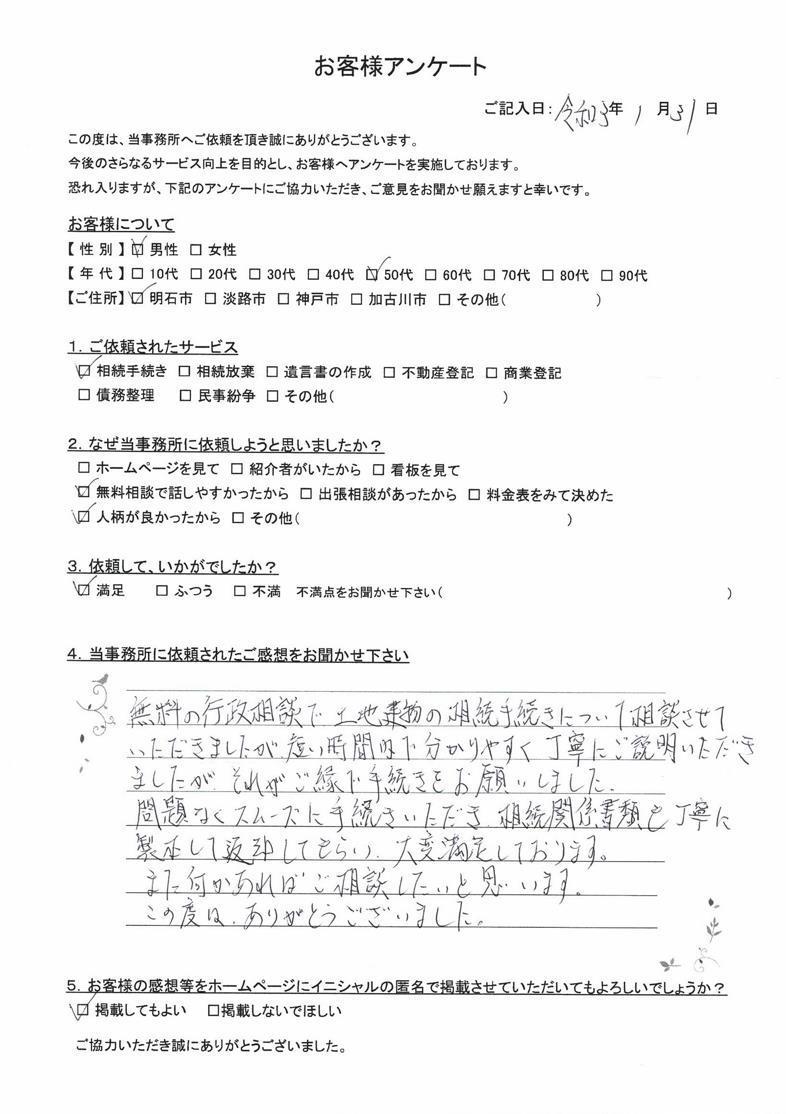 お客様アンケート
ご記入日：令和3年 1月31日
この度は、当事務所へご依頼を頂き誠にありがとうございます。
今後のさらなるサービス向上を目的とし、お客様へアンケートを実施しております。
恐れ入りますが、下記のアンケートにご協力いただき、ご意見をお聞かせ願えますと幸いです。
お客様について
【 性 別 】☑ 男性 □ 女性
【 年 代 】□ 10代 □ 20代 □ 30代 □ 40代 ☑ 50代 □ 60代 □ 70代 □ 80代 □ 90代
【ご住所】☑ 明石市 □ 淡路市 □ 神戸市 □ 加古川市 □ その他( )
1．ご依頼されたサービス
☑ 相続手続き □ 相続放棄 □ 遺言書の作成 □ 不動産登記 □ 商業登記
□ 債務整理 □ 民事紛争 □ その他( )
2．なぜ当事務所に依頼しようと思いましたか？
□ ホームページを見て □ 紹介者がいたから □ 看板を見て
☑ 無料相談で話しやすかったから □ 出張相談があったから □ 料金表をみて決めた
☑ 人柄が良かったから □ その他( )
3．依頼して、いかがでしたか？
☑ 満足 □ ふつう □ 不満 不満点をお聞かせ下さい( )
4．当事務所に依頼されたご感想をお聞かせ下さい
無料の行政相談で土地建物の相続手続きについて相談させて
いただきましたが、短い時間内で分かりやすく丁寧にご説明いただき
ましたが、それがご縁で手続きをお願いしました。
問題なくスムーズに手続きいただき、相続関係書類も丁寧に
製本して返却してもらい、大変満足しております。
また何かあればご相談したいと思います。
この度は、ありがとうございました。
5．お客様の感想等をホームページにイニシャルの匿名で掲載させていただいてもよろしいでしょうか？
☑ 掲載してもよい □掲載しないでほしい
ご協力いただき誠にありがとうございました。